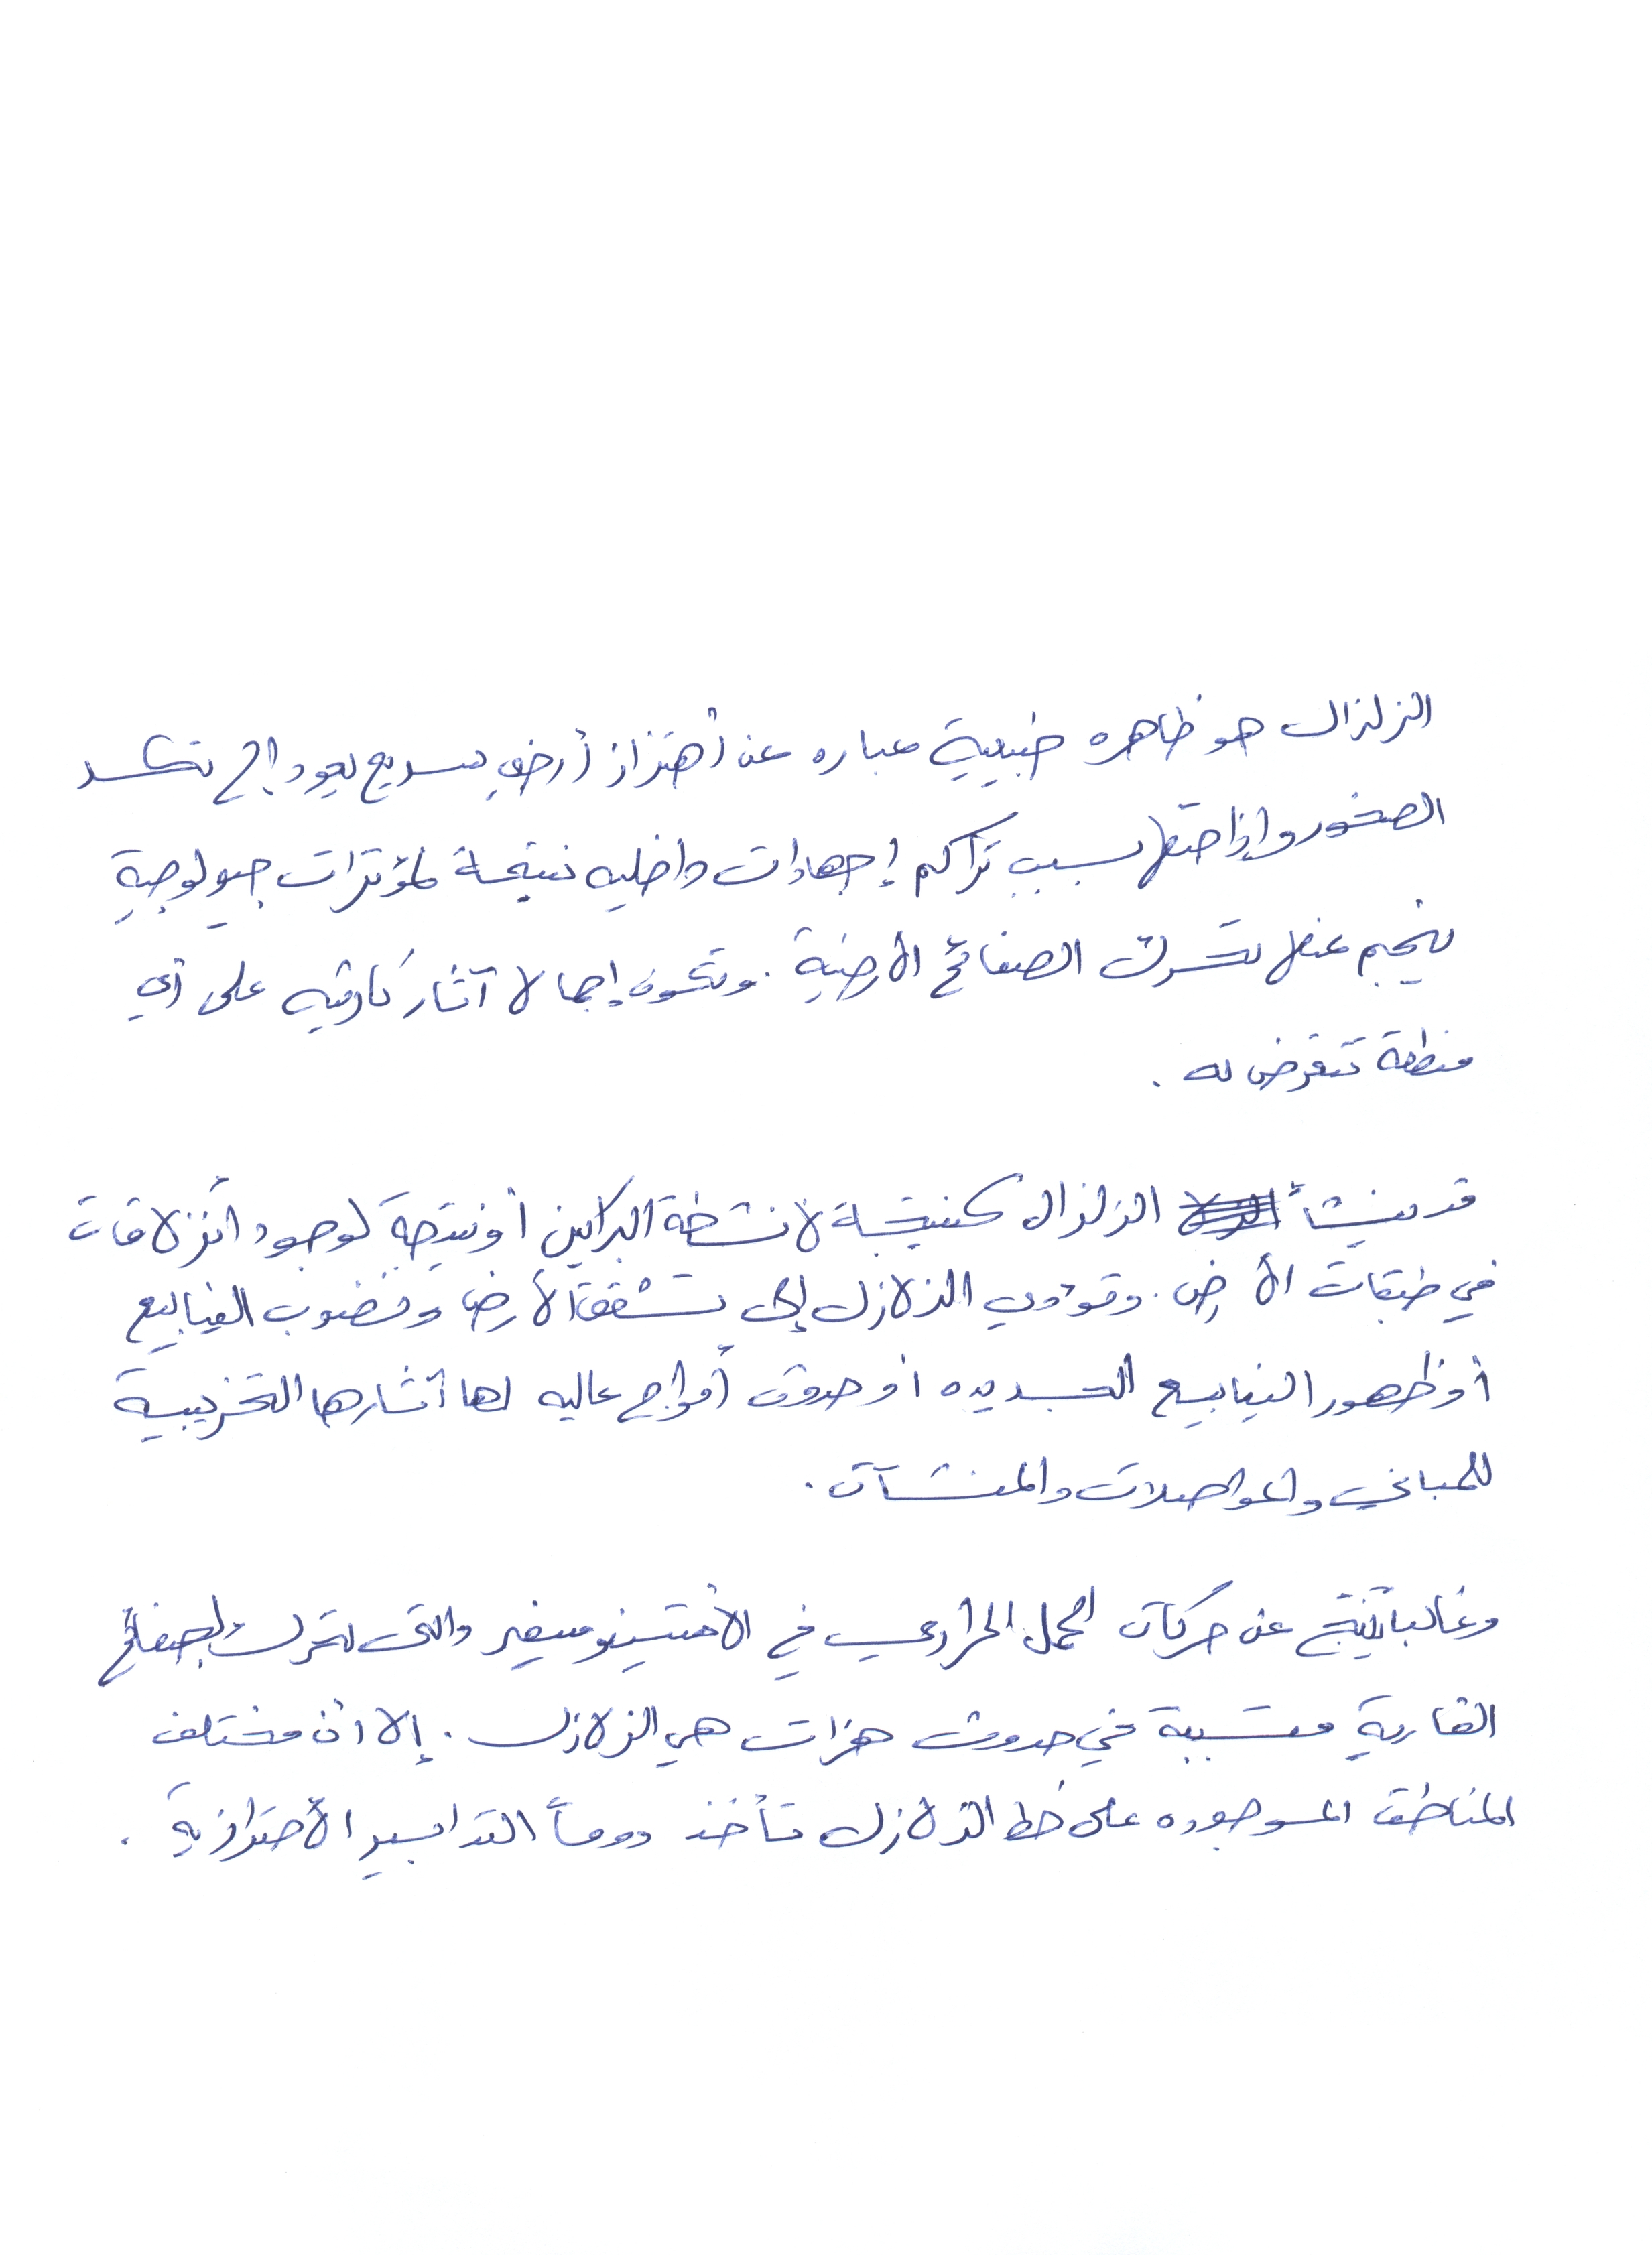 الزلزال هو ظاهره طبيعية عباره عن أهتزاز أرضي سريع يعود إلى تكسر
الصخور وإزاحتها بسبب تراكم إجهادات داخليه نتيجة لمؤثرات جيولوجية
ينجم عنها تحرك الصفائح الأرضية . وتكون إجمالا آثار كارثيه على أي
منطقة تتعرض له .
قد ينشأ الزلزال كنتيجة لأنشطة البراكين أو نتيجة لوجود أنزلاقات
في طبقات الأرض . وتؤدي الزلازل إلى تشقق الأرض ونضوب الينابيع
أو ظهور الينابيع الجديده أو حدوث أمواج عاليه لها آثارها التخريبية
للمباني والمواصلات والمنشآت .
وغالبا تنتج عن حركات الحمل الحراري في الأستينوسفير والتى تحرك الصفائح
القارية متسببة في حدوث هزات هي الزلازل . إلا أن مختلف
المناطق الموجوده على خط الزلازل تأخذ دوماً التدابير الأحترازية .